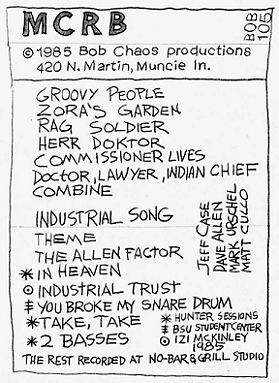 MCRB
BOB
105
©1985 Bob Chaos productions
420 N. Martin, Muncie In.
GROOVY PEOPLE
ZORA'S GARDEN
RAG SOLDIER
HERR DOKTOR
COMMISSIONER LIVES
DOCTOR, LAWYER, INDIAN CHIEF
COMBINE
INDUSTRIAL SONG
THEME
THE ALLEN FACTOR
* IN HEAVEN
⊙ INDUSTRIAL TRUST
‡ YOU BROKE MY SNARE DRUM
* TAKE, TAKE
* 2 BASSES
JEFF CASE
DAVE ALLEN
MARK URSCHEL
MATT CULLO
* HUNTER SESSIONS
‡ BSU STUDENT CENTER
⊙ 121 MCKINLEY
1985
THE REST RECORDED AT NO-BAR & GRILL STUDIO